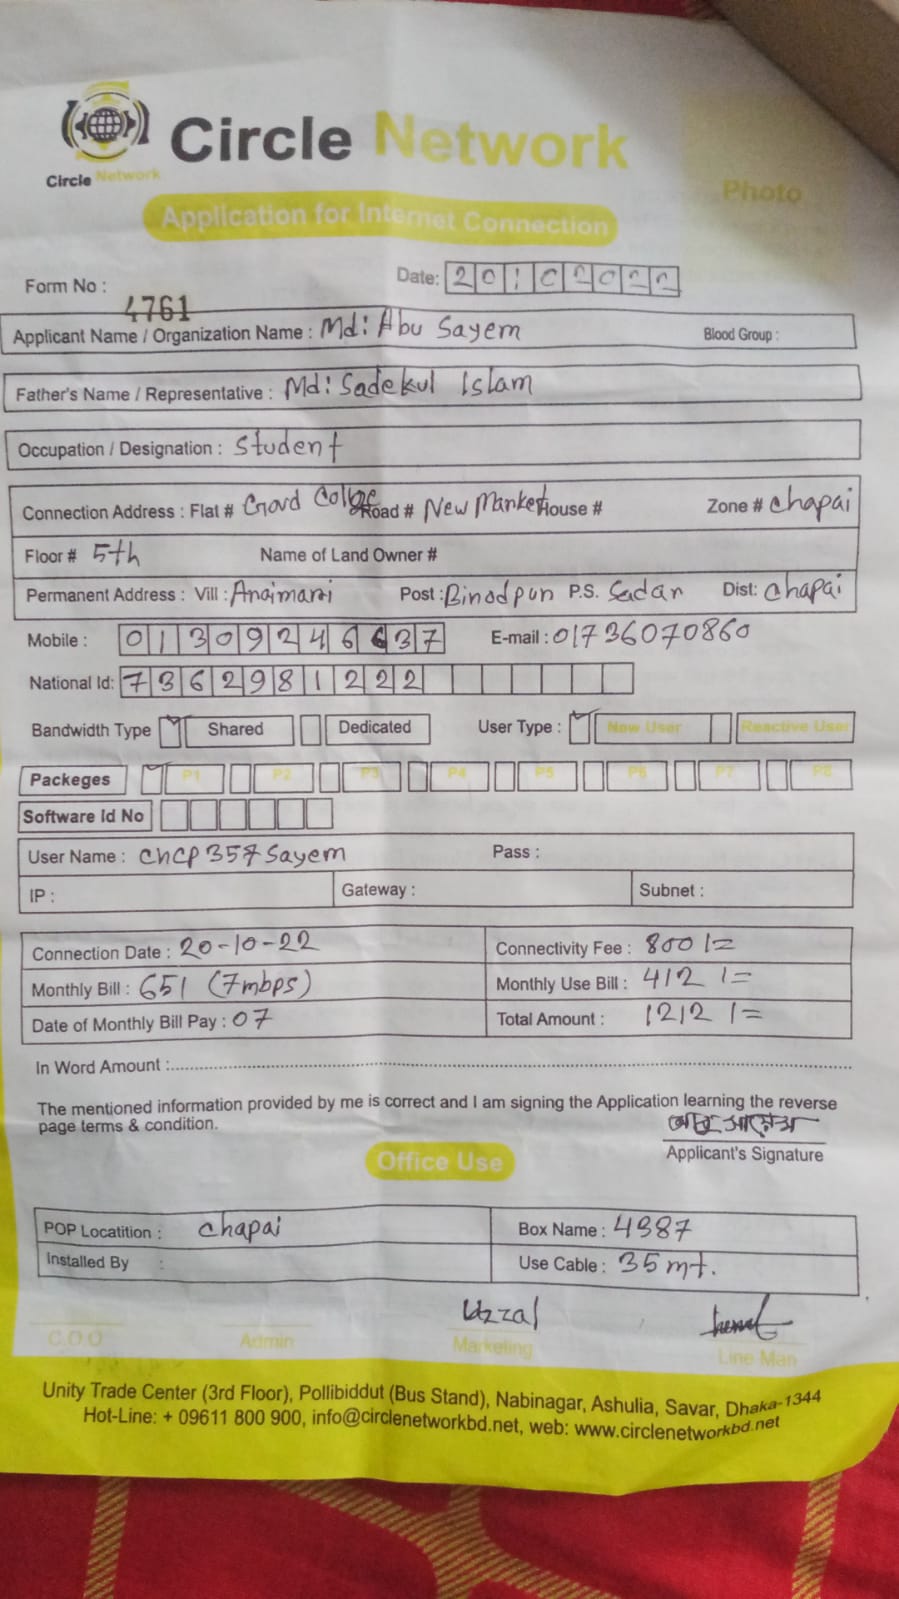 Circle Network
Circle Network
Photo
Application for Internet Connection
Form No : 4761
Date: 20102022
Applicant Name / Organization Name : Md: Abu Sayem Blood Group :
Father's Name / Representative : Md: Sadekul Islam
Occupation / Designation : Student
Connection Address : Flat # Road # New Market House # Zone # Chapai
Floor # 5th Name of Land Owner #
Permanent Address : Vill : Post : Binodpur P.S. Sadar Dist: Chapai
Mobile : 01309246637 E-mail : 01736070860
National Id: 7362981222
Bandwidth Type Shared Dedicated User Type : New User Reactive User
Packeges P1 P2 P3 P4 P5 P6 P7 P8
Software Id No
User Name : chcp357sayem Pass :
IP : Gateway : Subnet :
Connection Date : 20-10-22 Connectivity Fee : 800/=
Monthly Bill : 651 (7mbps) Monthly Use Bill : 412/=
Date of Monthly Bill Pay : 07 Total Amount : 1212/=
In Word Amount :
The mentioned information provided by me is correct and I am signing the Application learning the reverse
page terms & condition.
Applicant's Signature
Office Use
POP Locatition : Chapai Box Name : 4387
Installed By : Use Cable : 35 mt.
Uzzal
C.O.O Admin Marketing Line Man
Unity Trade Center (3rd Floor), Pollibiddut (Bus Stand), Nabinagar, Ashulia, Savar, Dhaka-1344
Hot-Line: + 09611 800 900, info@circlenetworkbd.net, web: www.circlenetworkbd.net